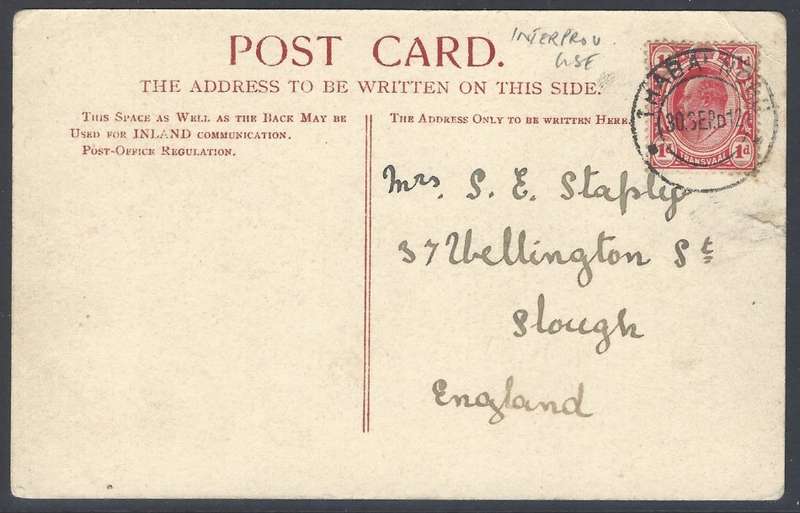 POST CARD.
INTERPROV.
USE
THE ADDRESS TO BE WRITTEN ON THIS SIDE.
THIS SPACE AS WELL AS THE BACK MAY BE
USED FOR INLAND COMMUNICATION.
POST-OFFICE REGULATION.
THE ADDRESS ONLY TO BE WRITTEN HERE.
1d 1d
30 SEP
1d TRANSVAAL 1d
Mrs. S. E. Staply
37 Wellington St
Slough
England